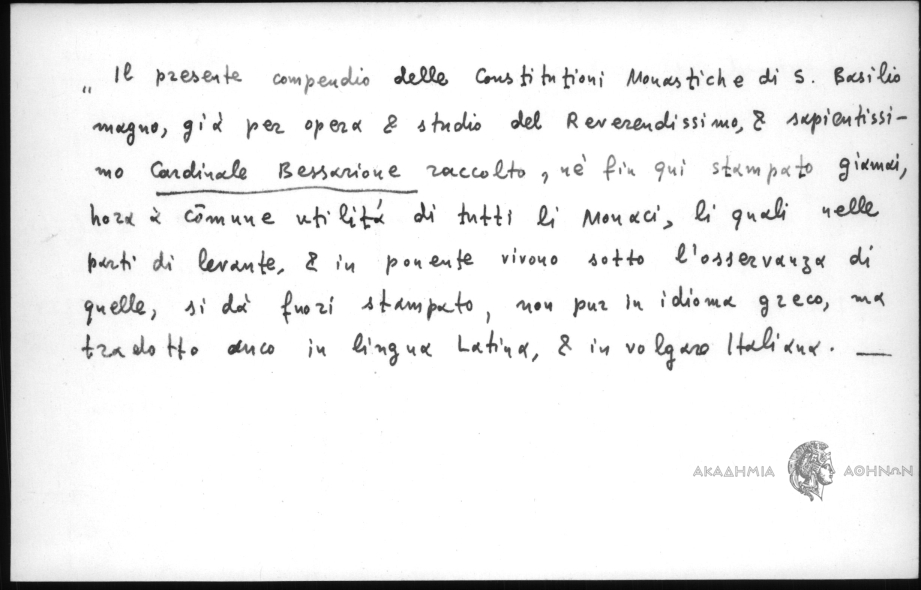 „ Il presente compendio delle Constitutioni Monastiche di S. Basilio
magno, già per opera & studio del Reverendissimo, & sapientissi-
mo Cardinale Bessarione raccolto, nè fin qui stampato giamai,
hora à cõmune utilità di tutti li Monaci, li quali nelle
parti di levante, & in ponente vivono sotto l'osservanza di
quelle, si dà fuori stampato, non pur in idioma greco, ma
tradotto anco in lingua Latina, & in volgare Italiana. —
ΑΚΑΔΗΜΙΑ ΑΘΗΝΩΝ